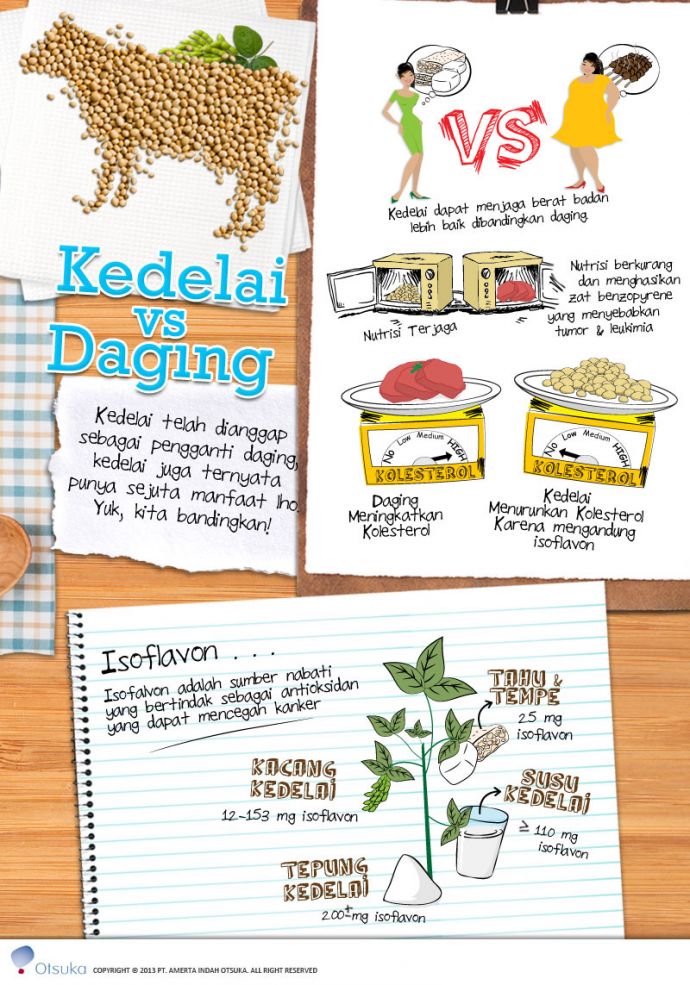 Kedelai
vs
Daging
Kedelai telah dianggap
sebagai pengganti daging,
kedelai juga ternyata
punya sejuta manfaat lho.
Yuk, kita bandingkan!
VS
Kedelai dapat menjaga berat badan
lebih baik dibandingkan daging.
Nutrisi Terjaga
Nutrisi berkurang
dan menghasikan
zat benzopyrene
yang menyebabkan
tumor & leukimia
No Low Medium HIGH
KOLESTEROL
Daging
Meningkatkan
Kolesterol
No Low Medium HIGH
KOLESTEROL
Kedelai
Menurunkan Kolesterol
Karena mengandung
isoflavon
Isoflavon . . .
Isofalvon adalah sumber nabati
yang bertindak sebagai antioksidan
yang dapat mencegah kanker
TAHU &
TEMPE
25 mg
isoflavon
KACANG
KEDELAI
12-153 mg isoflavon
SUSU
KEDELAI
≥ 110 mg
isoflavon
TEPUNG
KEDELAI
200± mg isoflavon
Otsuka COPYRIGHT © 2013 PT. AMERTA INDAH OTSUKA. ALL RIGHT RESERVED